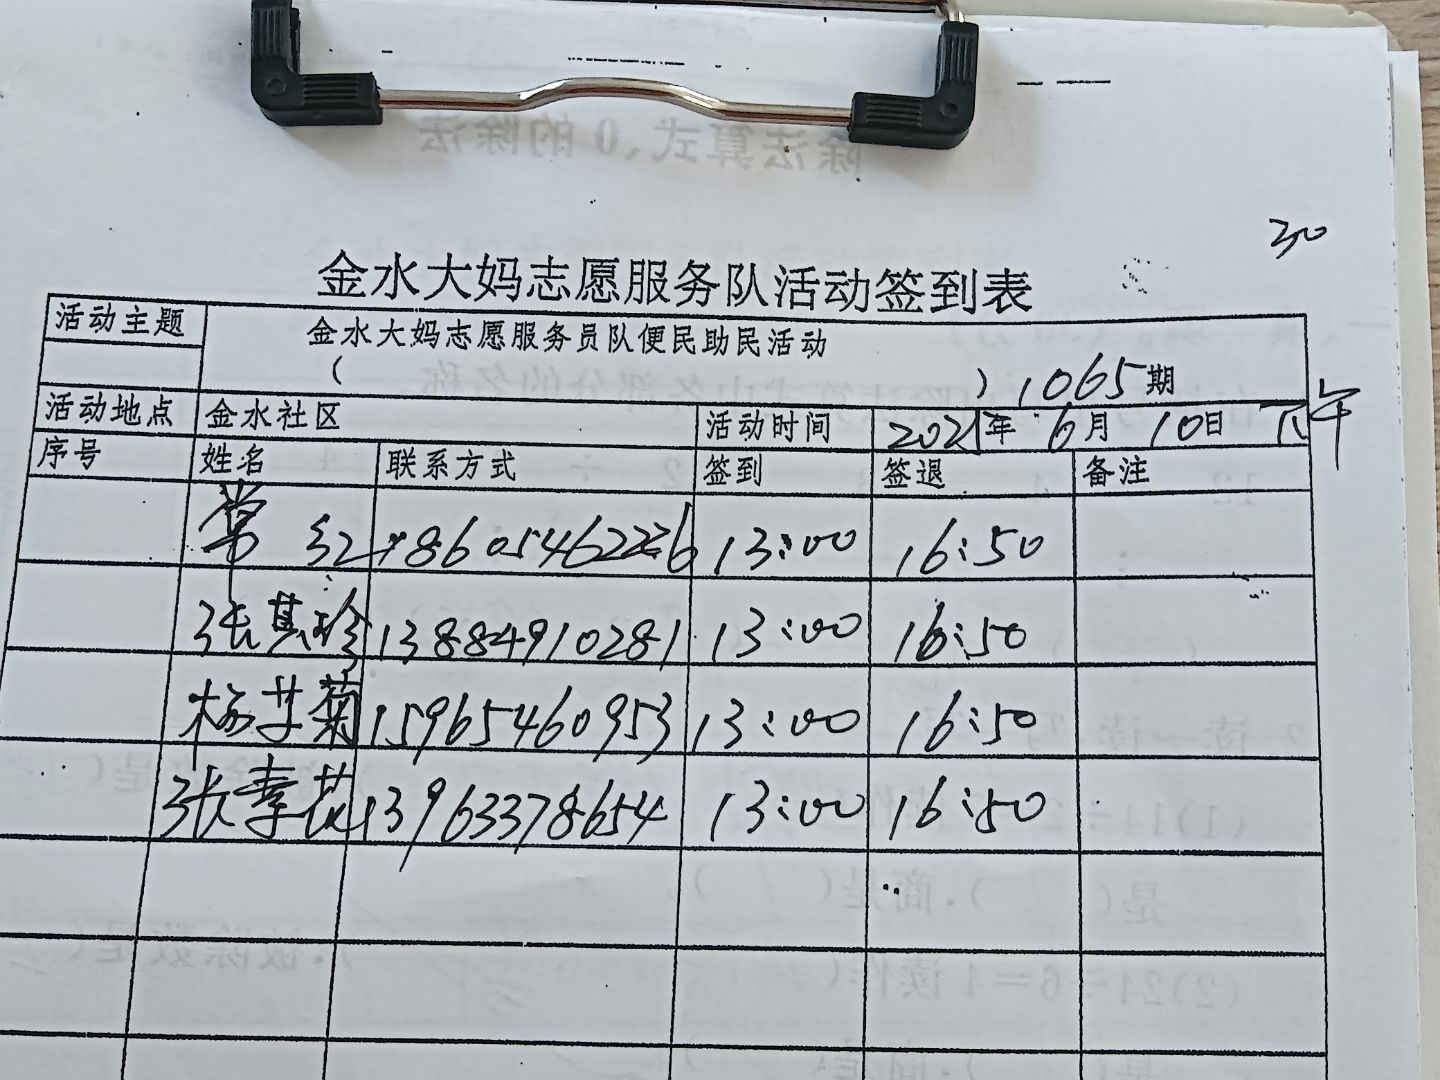 30
金水大妈志愿服务队活动签到表
活动主题 金水大妈志愿服务员队便民助民活动
( ) 1065期
活动地点 金水社区 活动时间 2021年 6月 10日 下午
序号 姓名 联系方式 签到 签退 备注
常红 18605462226 13:00 16:50
张其珍 13884910281 13:00 16:50
杨艾菊 15965460953 13:00 16:50
张季花 13963378654 13:00 16:50